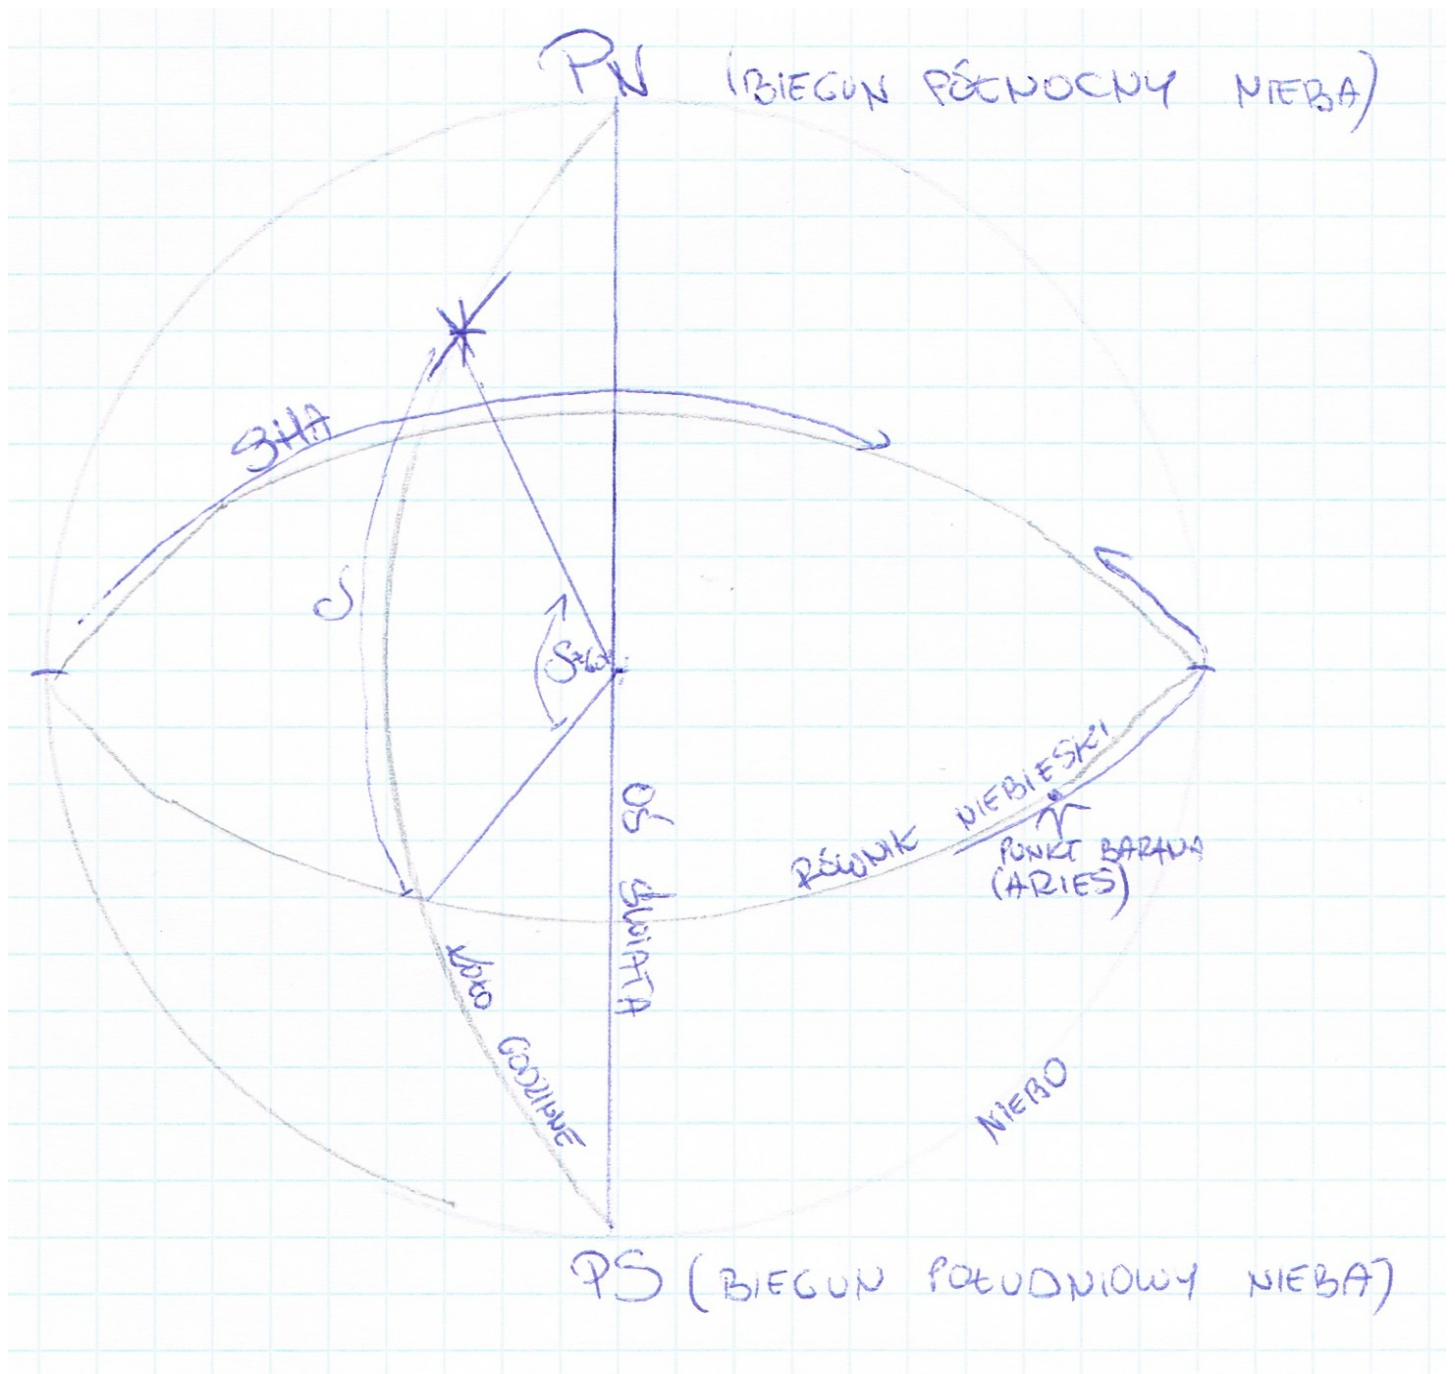 PN (BIEGUN PÓŁNOCNY NIEBA)
SHA
δ
RÓWNIK NIEBIESKI
PUNKT BARANA
(ARIES)
OŚ ŚWIATA
KOŁO GODZINNE
NIEBO
PS (BIEGUN POŁUDNIOWY NIEBA)